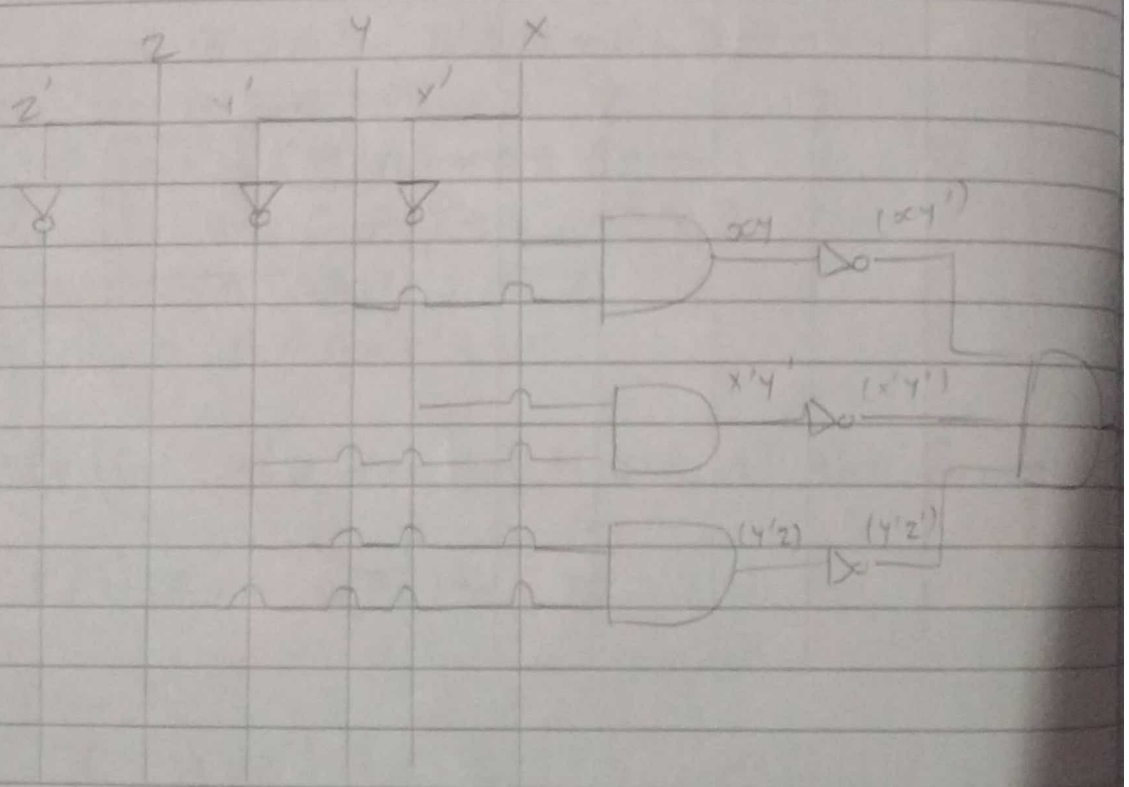 Z Y X
Z' Y' X'
xy (xy')
x'y' (x'y')
(y'z) (y'z')